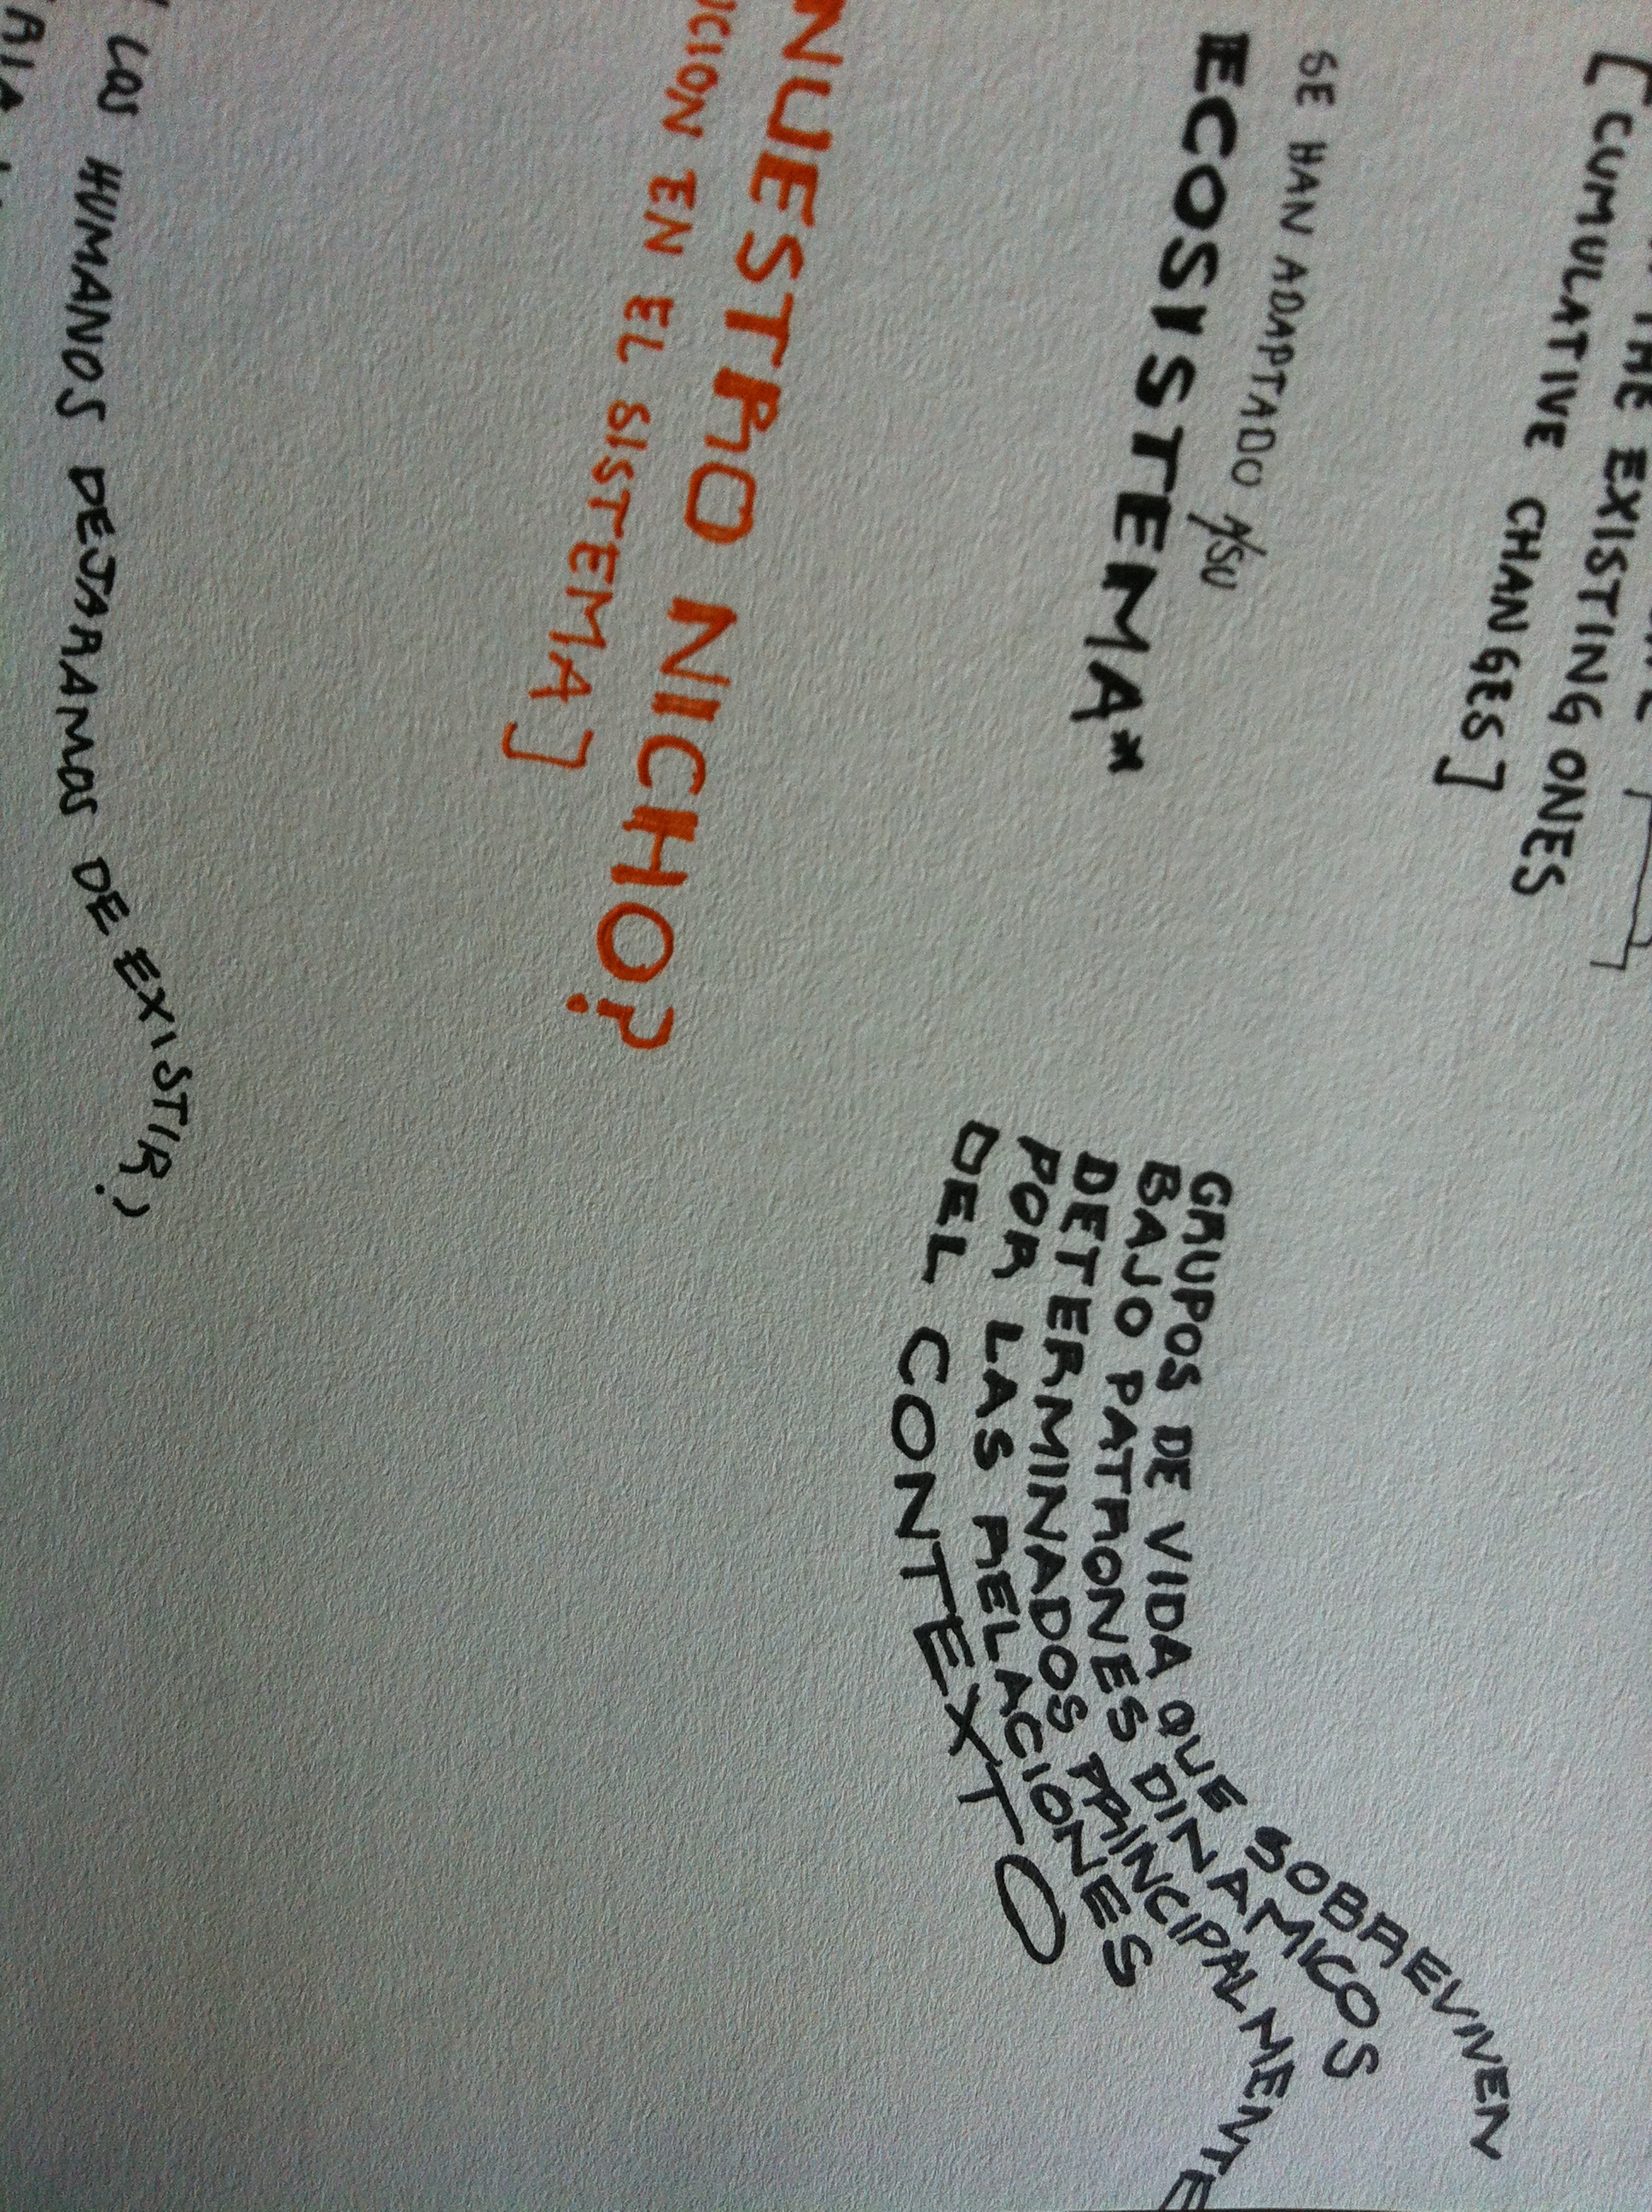 THE EXISTING ONES
[CUMULATIVE CHANGES]
SE HAN ADAPTADO A/SU
ECOSISTEMA*
NUESTRO NICHO?
CION EN EL SISTEMA]
LOS HUMANOS DEJARAMOS DE EXISTIR.)
GRUPOS DE VIDA QUE SOBREVIVEN
BAJO PATRONES DINAMICOS
DETERMINADOS PRINCIPALMENTE
POR LAS RELACIONES
DEL CONTEXTO